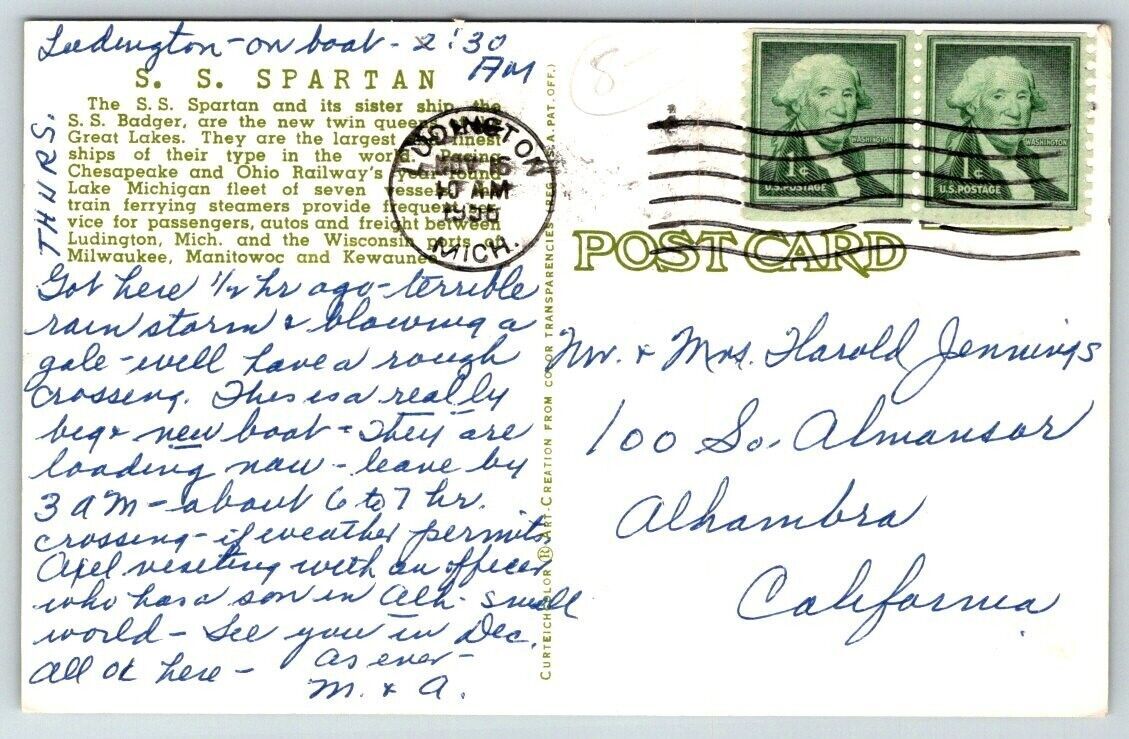 Ludington - on boat - 2:30
AM
THRS.
S. S. SPARTAN
The S.S. Spartan and its sister ship, the
S.S. Badger, are the new twin queens
Great Lakes. They are the largest finest
ships of their type in the world. Pacing
Chesapeake and Ohio Railway's year round
Lake Michigan fleet of seven vessels,
train ferrying steamers provide frequent
vice for passengers, autos and freight between
Ludington, Mich. and the Wisconsin ports of
Milwaukee, Manitowoc and Kewaunee
Got here 1/2 hr ago - terrible
rain storm & blowing a
gale - will have a rough
crossing. This is a really
big & new boat - They are
loading now - leave by
3 AM - about 6 to 7 hr.
crossing - if weather permits.
Axel visiting with an officer
who has a son in Alh. small
world - See you in Dec.
All OK here -
As ever -
M. & A.
CURTEICHCOLOR ® ART-CREATION FROM COLOR TRANSPARENCIES (REG. U.S.A. PAT. OFF.)
8
LUDINGTON
10 AM
1956
MICH.
WASHINGTON
1¢
U.S. POSTAGE
WASHINGTON
1¢
U.S. POSTAGE
POST CARD
Mr. & Mrs. Harold Jennings
100 So. Almansor
Alhambra
California